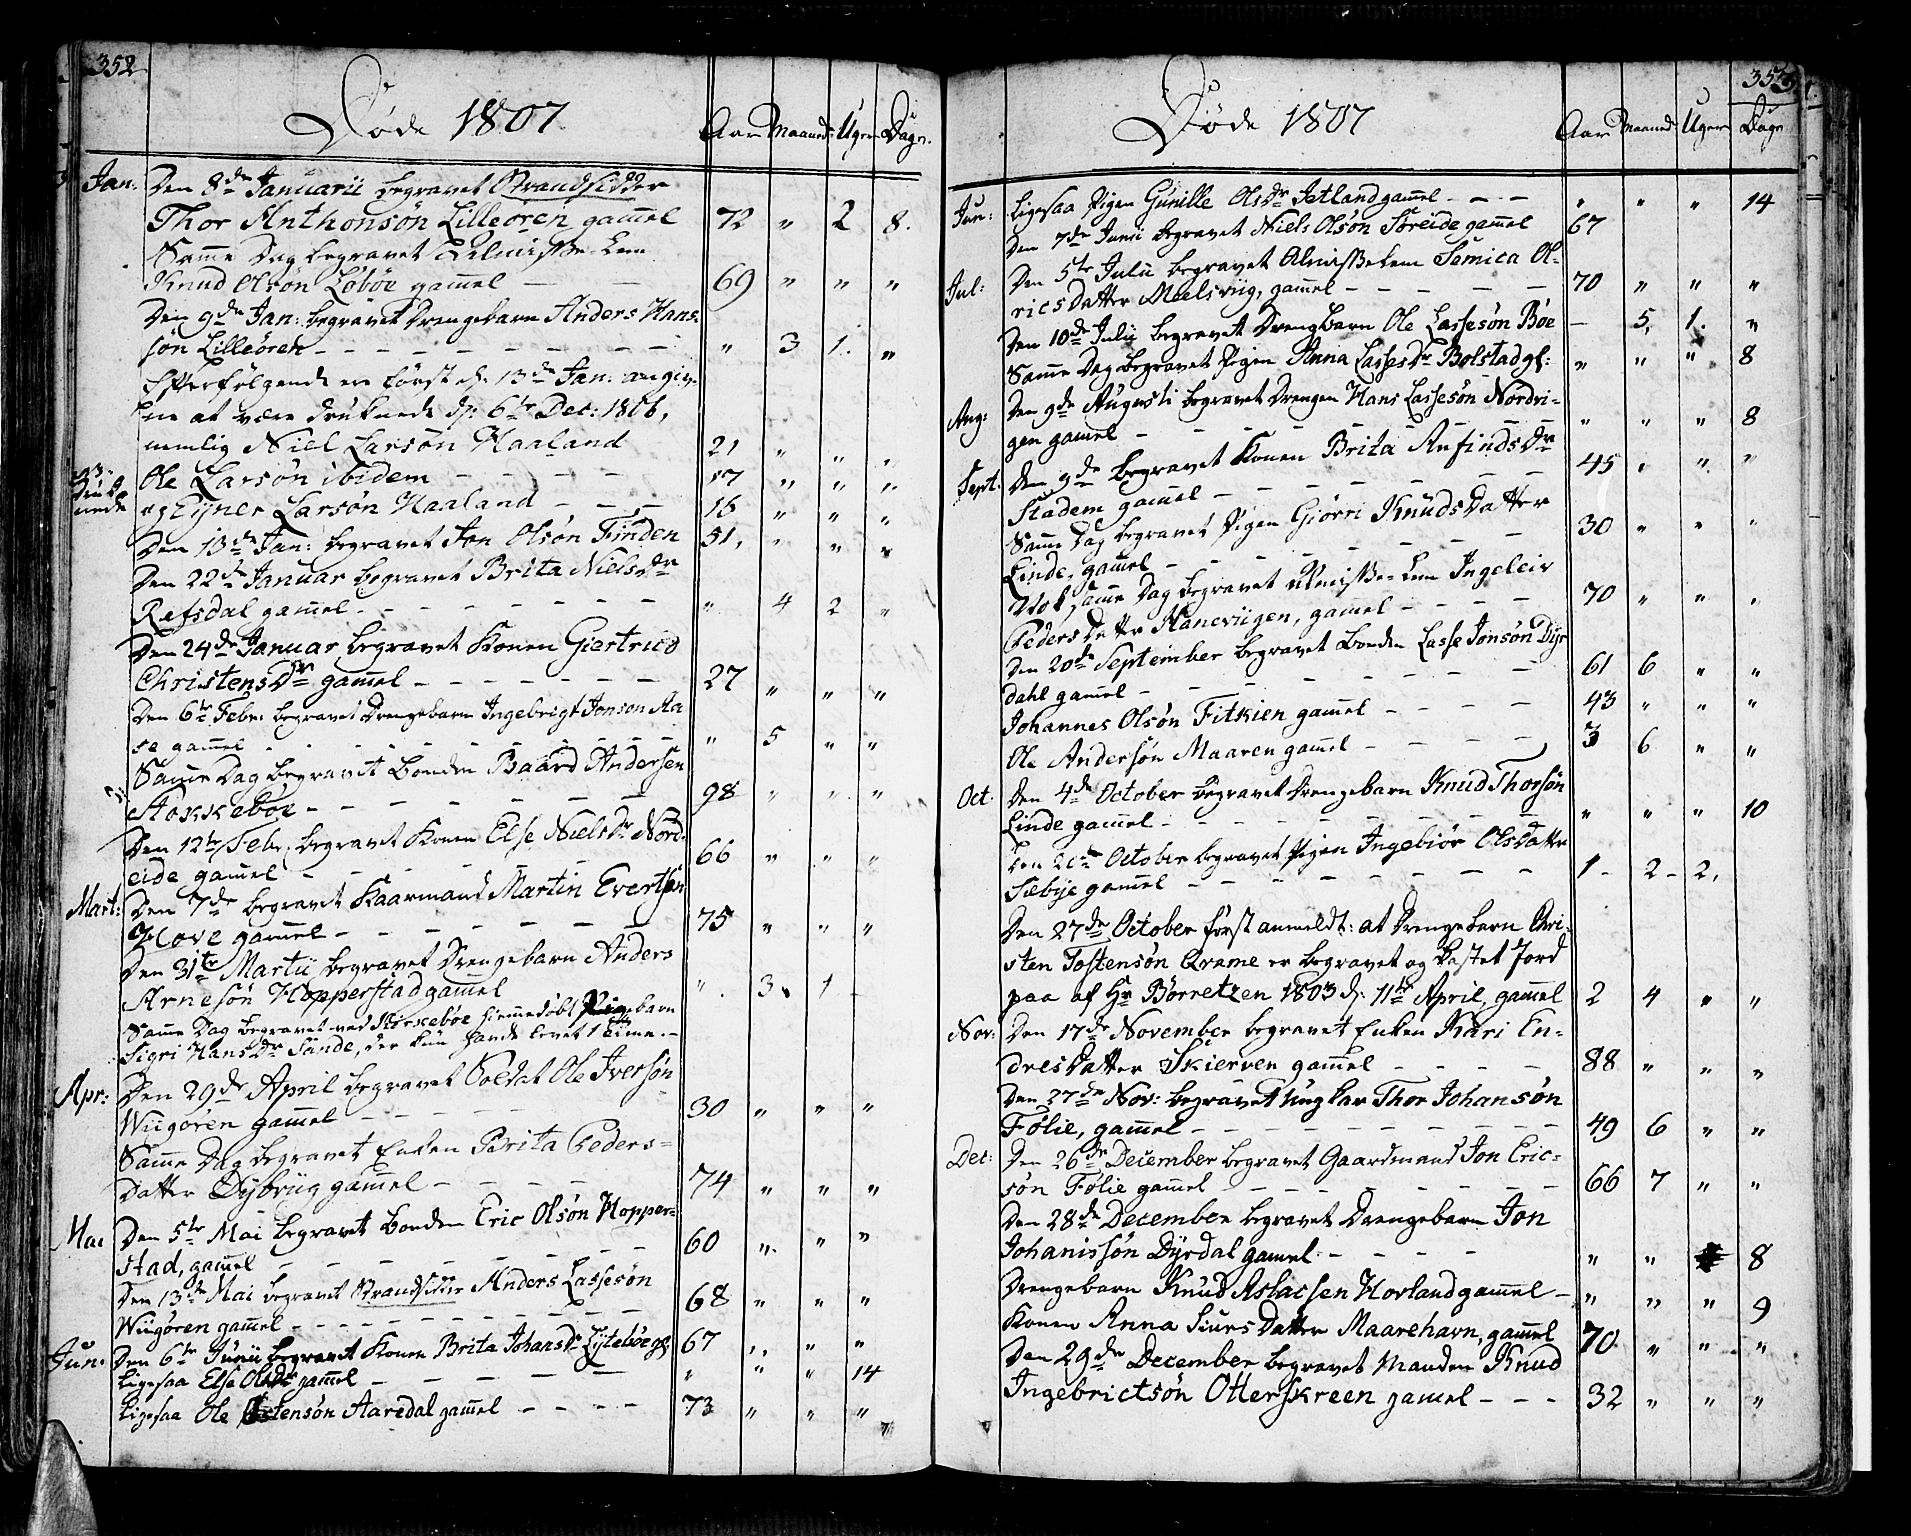 352
Døde 1807
Aar Maaned: Uger Dage.
Jan: Den 8de Januarii begravet Strandsidder
Thor Anthonsøn Lilleøren gammel 72 " 2 8.
Samme Dag begravet Lem
Knud Olsøn Løbøe gammel — — 69 " " "
Den 9de Jan: begravet Drengebarn Anders Hans-
søn Lilleøren - - - - - - - - " 3 1. "
Efterfølgende er først d: 13de Jan: angiv-
ne at være druknede d: 6te Dec: 1806,
nemlig Niel Larsøn Haaland 21 " " "
3 Druknede Ole Larsøn ibidem - - - - 17 " " "
og Ejner Larsøn Haaland - - - 16 " " "
Den 13de Jan: begravet Jon Olsøn Finden 51, " " "
Den 22de Januar begravet Brita NielsDr
Refsdal gammel - - - - - - - " 4 2 "
Den 24de Januar begravet Konen Giertrud
ChristensDr gammel - - - - - - 27 " " "
Den 6te Febr: begravet Drengebarn Ingebrigt Jonson Aa
se gammel - - - - - - - - " 5 " "
Samme Dag begravet Bonden Baard Andersen
Stokkebøe - - - - - - - 98 " " "
Den 12te Febr: begravet Konen Else NielsDr Nord-
eide gammel - - - 66 " " "
Mart: Den 7de begravet Kaarmand Martin Evertsøn
Hove gammel - - - - - - - 75 " " "
Den 31te Martii begravet Drengebarn Anders
Arnesøn Hopperstad gammel ". 3. 1 -
Samme Dag begravet ved Størkebøe hiemmedøbt Pigebarn
Sigri HansDr Sande, der kun havde levet 1 Time. -
Apr: Den 29de April begravet Soldat Ole Iversøn
Wiigøren gammel - - - - - 30 " " "
Samme Dag begravet Enken Brita Peders=
Datter Dybviig gammel - - - - 74 " " "
Mai Den 5te Mai begravet Bonden Eric Olsøn Hopper=
stad, gammel - - - - - - - 60 " " "
Den 13de Mai begravet Strandsidder Anders Lassesøn
Wiigøren gammel - - - - - - - 68 " " "
Jun: Den 6te Junii begravet Konen Brita JohansDr Lytebøe gl: 67 " " "
Ligesaa Else gammel - - - - - - " " " 14
Ligesaa Ole Aaredal gammel - - - - 73 " " "
353
Døde 1807
Aar Maaned: Uger Dage
Jun: Ligesaa Pigen Gunille OlsDr Jetland gammel - - - " " " 14
Den 7de Junii begravet Niels Olsøn Søreide gammel 67
Jul: Den 5te Julii begravet Almisselem Semica Ol-
ricsDatter Meelsviig, gammel - - - - - 70 " " "
Den 10de Julii begravet Drengbarn Ole Lassesøn Bøe — 5, 1. "
Samme Dag begravet Pigen Anna LassesDr Bolstad gl: " " " 8
Aug: Den 9de Augusti begravet Drengen Hans Lassesøn Nordvi-
gen gammel - - - - - - " " " 8
Sept: Den 9de begravet Konen Brita AnfindsDr
Stadem gammel - - - - - - 45 " " "
Samme Dag begravet Pigen Giørri KnudsDatter
Linde, gammel - - - - - - 30 " " "
samme Dag begravet Almisse-Lem Ingeleiv
PedersDatter Haneviigen, gammel - - - - 70 " " "
Den 20de September begravet Bonden Lasse Jonsøn Dyr
dahl gammel - - - - - - - 61 6 " "
Johannes Olsøn Fitkien gammel - - - - 43 " " "
Ole Andersøn Maaren gammel - - - - 3 6 " "
Oct: Den 4de October begravet Drengebarn Knud Thorsøn
Linde gammel - - - - - - - " " " 10
Den October begravet Pigen Ingebiør OlsDatter
Sæbye gammel - - - - - - - 1 - 2 - 2,
Den 27de October først anmeldt: at Drengebarn Chri-
sten Tostensøn Qvame er begravet og kastet Jord
paa af Hr Børretzen 1803 d: 11te April, gammel 2 4 " "
Nov: Den 17de November begravet Enken Kari En-
dresDatter Skierven gammel - - - - 88 " " "
Den 27de Nov: begravet Ungkar Thor Johansøn
Følie, gammel - - - - - - - - 49 6 " "
Dec: Den 26de December begravet Gaardmand Jon Eric-
søn Følie gammel - - - - - - - 66 7 " "
Den 28de December begravet Drengebarn Jon
Johanissøn Dyrdal gammel - - - - " " 8
Drengebarn Knud Aslacsen Hovland gammel - " " " 9
Konen Anna SiursDatter Maarehavn, gammel 70 " " "
Den 29de December begravet Manden Knud
Ingebrictsøn Otterskreen gammel - - - 32 " " "